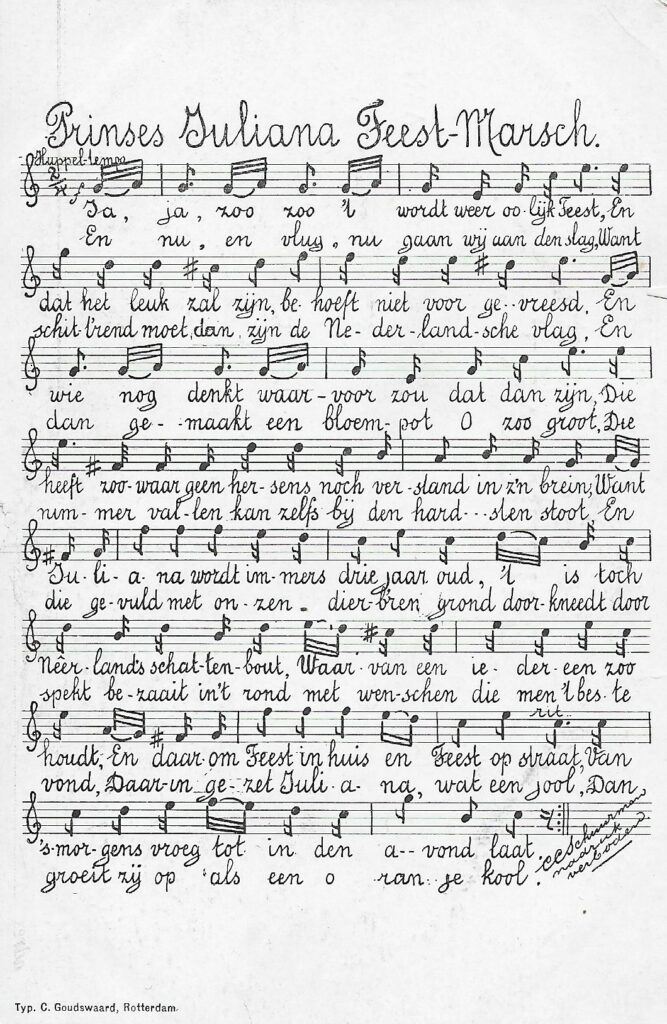 Prinses Juliana Feest-Marsch.
Huppel-tempo
2/4 f
Ja, ja, zoo zoo 't wordt weer oo-lijk Feest, En
En nu, en vlug, nu gaan wij aan den slag, Want
dat het leuk zal zijn, be-hoeft niet voor ge--vreesd, En
schit-t'rend moet, dan, zijn de Ne-der-land-sche vlag, En
wie nog denkt waar-voor zou dat dan zijn, Die
dan ge-maakt een bloem-pot O zoo groot, Die
heeft zoo-waar geen her-sens noch ver-stand in z'n brein, Want
nim-mer val-len kan zelfs bij den hard---sten stoot, En
Ju-li-a-na wordt im-mers drie jaar oud, 't is toch
die ge-vuld met on-zen dier-b'ren grond door-kneedt door
Neêr-land's schat-ten-bout, Waar-van een ie-der-een zoo
spekt be-zaait in't rond met wen-schen die men 't bes-te
rit.
houdt, En daar-om Feest in huis en Feest op straat, Van
vond, Daar-in ge-zet Juli-a-na, wat een jool, Dan
's-mor-gens vroeg tot in den a--vond laat.
groeit zij op als een o ran-je kool.
CC Schuurman
nadruk
verboden
Typ. C. Goudswaard, Rotterdam.